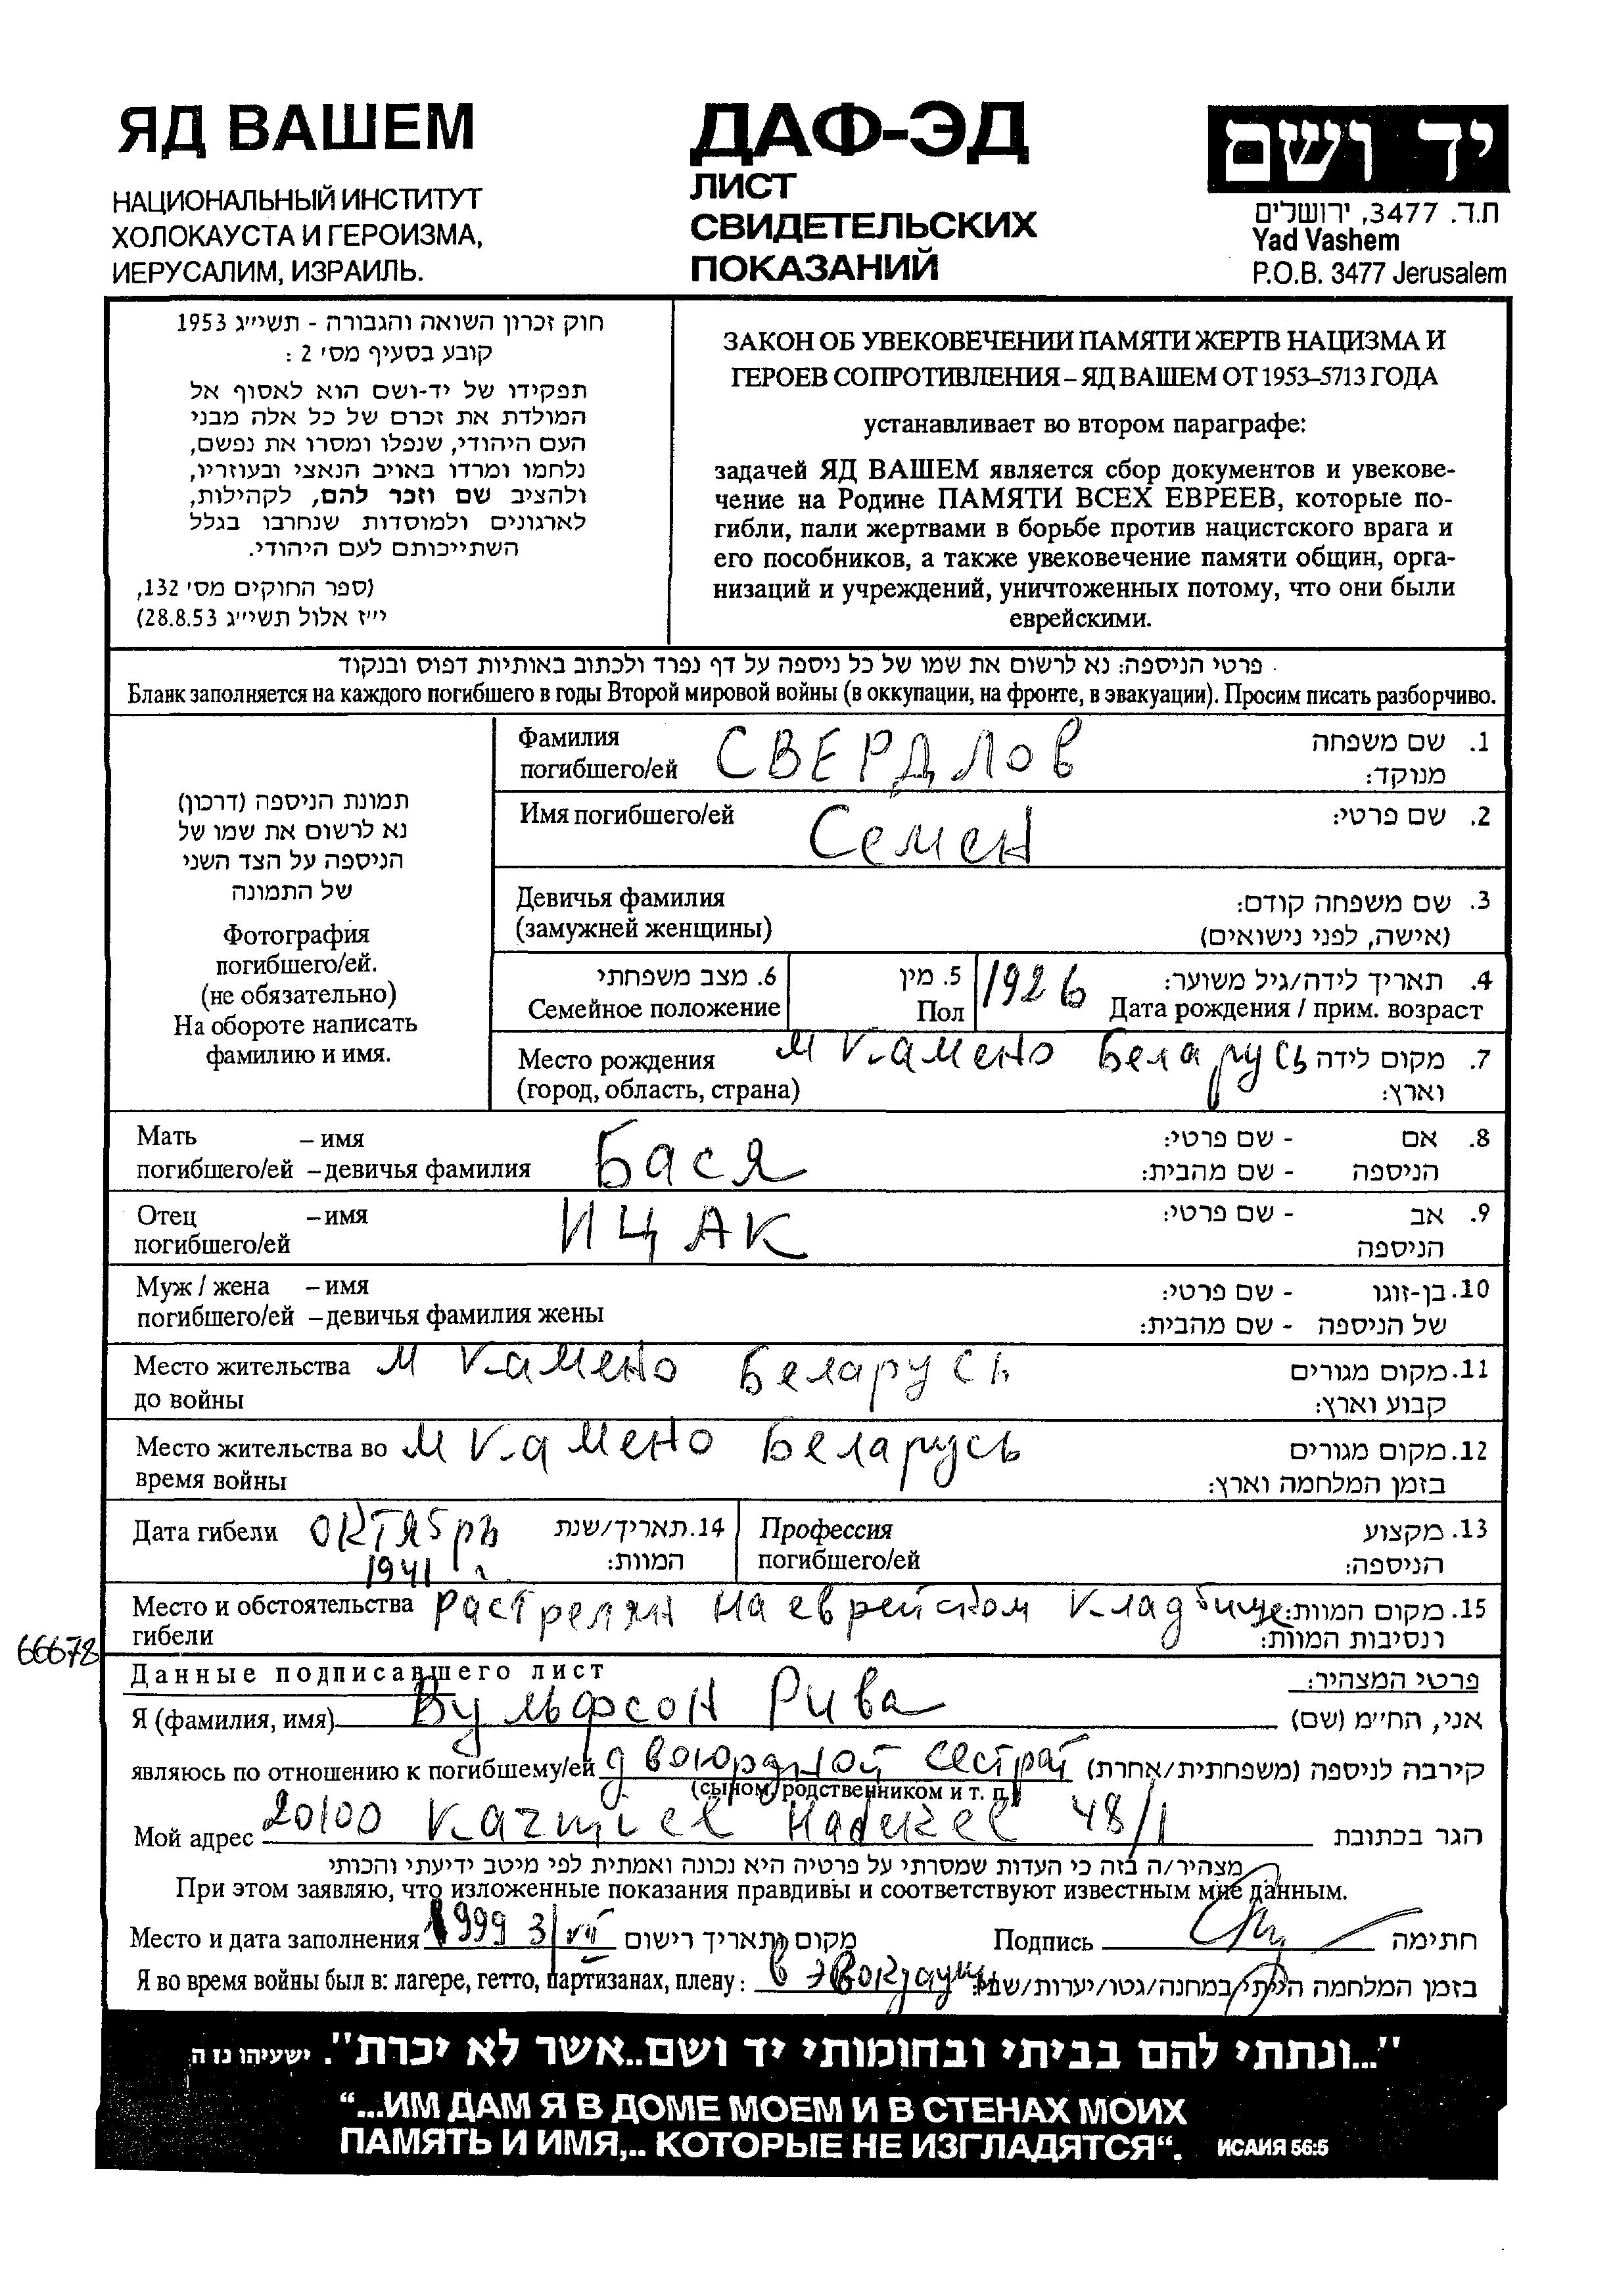 ЯД ВАШЕМ
НАЦИОНАЛЬНЫЙ ИНСТИТУТ
ХОЛОКАУСТА И ГЕРОИЗМА,
ИЕРУСАЛИМ, ИЗРАИЛЬ.
ДАФ-ЭД
ЛИСТ
СВИДЕТЕЛЬСКИХ
ПОКАЗАНИЙ
יד ושם
ת.ד. 3477, ירושלים
Yad Vashem
P.O.B. 3477 Jerusalem
חוק זכרון השואה והגבורה - תשי״ג 1953
קובע בסעיף מס׳ 2 :
תפקידו של יד-ושם הוא לאסוף אל
המולדת את זכרם של כל אלה מבני
העם היהודי, שנפלו ומסרו את נפשם,
נלחמו ומרדו באויב הנאצי ובעוזריו,
ולהציב שם וזכר להם, לקהילות,
לארגונים ולמוסדות שנחרבו בגלל
השתייכותם לעם היהודי.
(ספר החוקים מס׳ 132,
י״ז אלול תשי״ג 28.8.53)
ЗАКОН ОБ УВЕКОВЕЧЕНИИ ПАМЯТИ ЖЕРТВ НАЦИЗМА И
ГЕРОЕВ СОПРОТИВЛЕНИЯ – ЯД ВАШЕМ ОТ 1953–5713 ГОДА
устанавливает во втором параграфе:
задачей ЯД ВАШЕМ является сбор документов и увекове-
чение на Родине ПАМЯТИ ВСЕХ ЕВРЕЕВ, которые по-
гибли, пали жертвами в борьбе против нацистского врага и
его пособников, а также увековечение памяти общин, орга-
низаций и учреждений, уничтоженных потому, что они были
еврейскими.
פרטי הניספה: נא לרשום את שמו של כל ניספה על דף נפרד ולכתוב באותיות דפוס ובנקוד
Бланк заполняется на каждого погибшего в годы Второй мировой войны (в оккупации, на фронте, в эвакуации). Просим писать разборчиво.
תמונת הניספה (דרכון)
נא לרשום את שמו של
הניספה על הצד השני
של התמונה
Фотография
погибшего/ей.
(не обязательно)
На обороте написать
фамилию и имя.
Фамилия СВЕРДЛОВ 1. שם משפחה
погибшего/ей מנוקד:
Имя погибшего/ей Семен 2. שם פרטי:
Девичья фамилия 3. שם משפחה קודם:
(замужней женщины) (אישה, לפני נישואים)
6. מצב משפחתי 5. מין 1926 4. תאריך לידה/גיל משוער:
Семейное положение Пол Дата рождения / прим. возраст
Место рождения м Камено Беларусь 7. מקום לידה
(город, область, страна) וארץ:
Мать – имя Бася 8. אם - שם פרטי:
погибшего/ей – девичья фамилия הניספה - שם מהבית:
Отец – имя ИЦАК 9. אב - שם פרטי:
погибшего/ей הניספה
Муж / жена – имя 10. בן-זוגו - שם פרטי:
погибшего/ей – девичья фамилия жены של הניספה - שם מהבית:
Место жительства м Камено Беларусь 11. מקום מגורים
до войны קבוע וארץ:
Место жительства во м Камено Беларусь 12. מקום מגורים
время войны בזמן המלחמה וארץ:
Дата гибели октябрь 14. תאריך/שנת Профессия 13. מקצוע
1941 г. המוות: погибшего/ей הניספה:
Место и обстоятельства растрелян на еврейском кладбище 15. מקום המוות:
гибели ונסיבות המוות:
66678
Данные подписавшего лист פרטי המצהיר:
Я (фамилия, имя) Вульфсон Рива אני, הח״מ (שם)
являюсь по отношению к погибшему/ей двоюрдной сестрай קירבה לניספה (משפחתית/אחרת)
(сыном, родственником и т. п.)
Мой адрес 20100 Karmiel Hadekel 48/1 הגר בכתובת
מצהיר/ה בזה כי העדות שמסרתי על פרטיה היא נכונה ואמתית לפי מיטב ידיעתי והכותי
При этом заявляю, что изложенные показания правдивы и соответствуют известным мне данным.
Место и дата заполнения 1999 3/VII מקום ותאריך רישום Подпись חתימה
Я во время войны был в: лагере, гетто, партизанах, плену: в בזמן המלחמה הייתי במחנה/גטו/יערות/שבי:
"...ונתתי להם בביתי ובחומותי יד ושם..אשר לא יכרת". ישעיהו נז ה
“...ИМ ДАМ Я В ДОМЕ МОЕМ И В СТЕНАХ МОИХ
ПАМЯТЬ И ИМЯ,.. КОТОРЫЕ НЕ ИЗГЛАДЯТСЯ“. ИСАИЯ 56:5